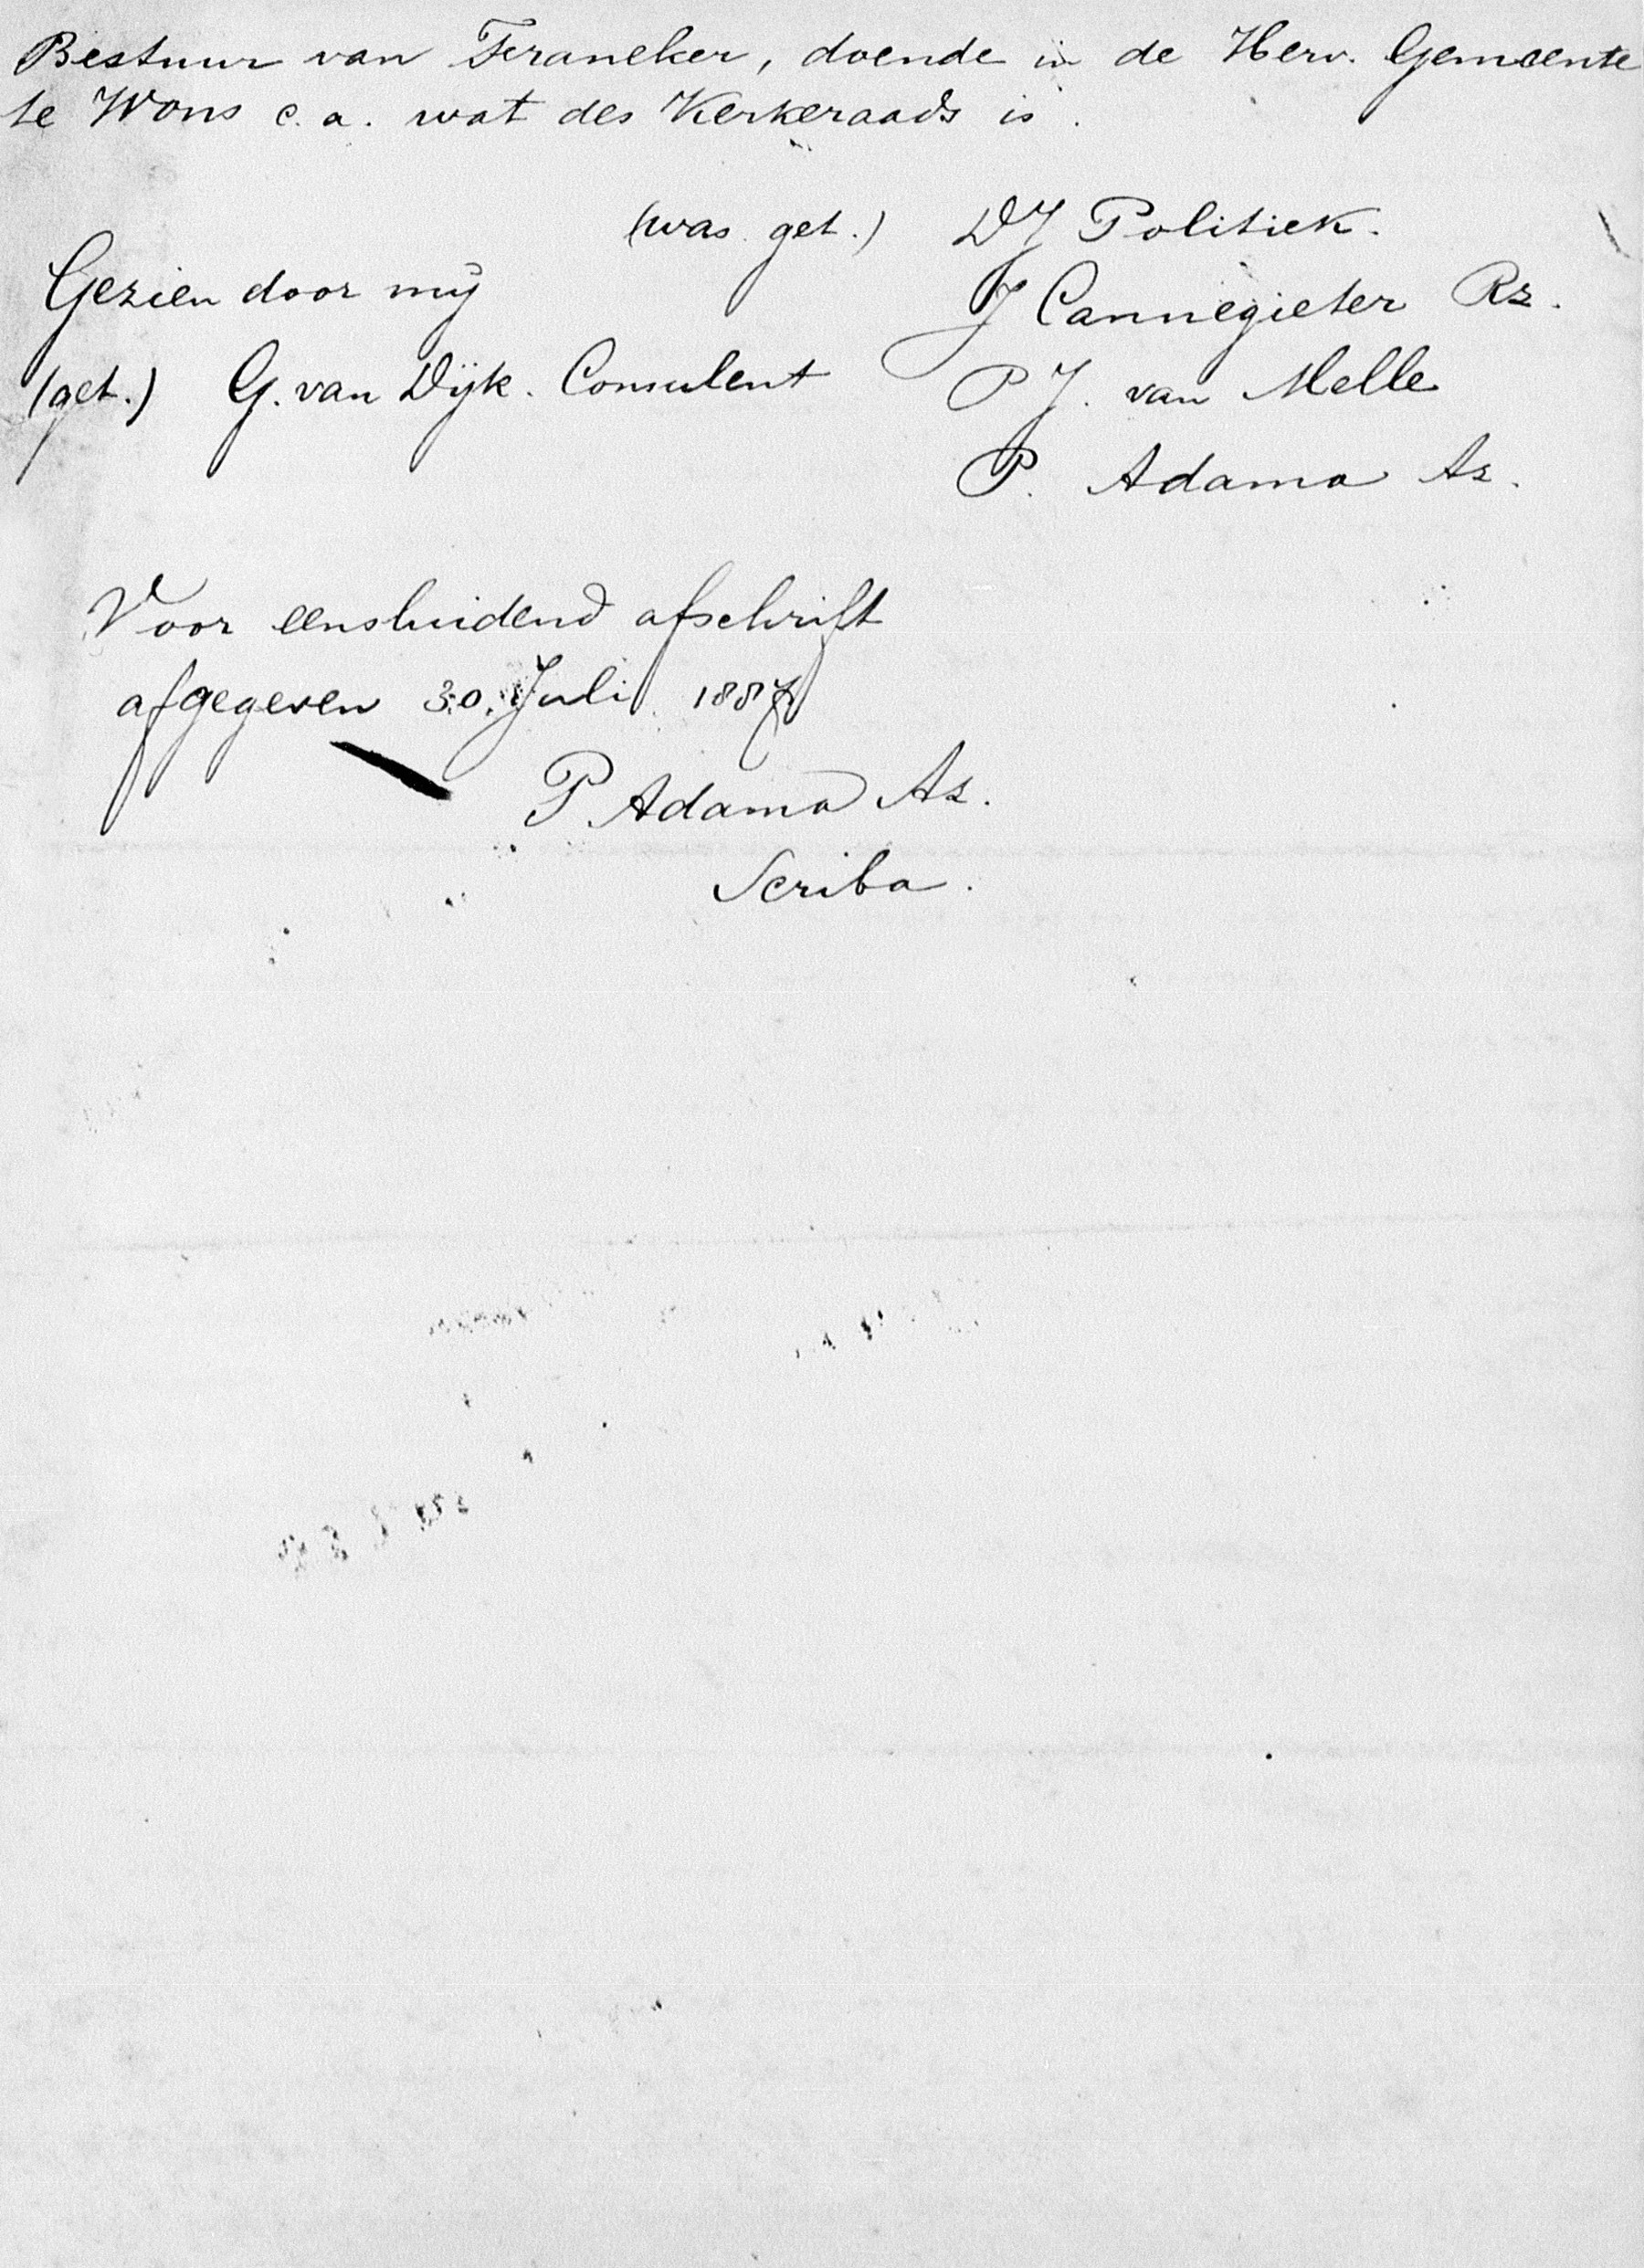 Bestuur van Franeker, doende in de Herv. Gemeente
te Wons c. a. wat des Kerkeraads is.
(was get.) DJ Politiek.
Gezien door mij
J Cannegieter Rz.
(get.) G. van Dijk. Consulent
P J. van Melle
P. Adama Az.
Voor eensluidend afschrift
afgegeven 30 Juli 1887
P. Adama Az.
Scriba.